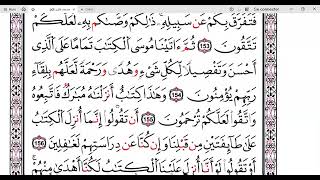 فَتَفَرَّقَ بِكُمْ عَن سَبِيلِهِۦ ذَٰلِكُمْ وَصَّىٰكُم بِهِۦ لَعَلَّكُمْ
تَتَّقُونَ 153 ثُمَّ ءَاتَيْنَا مُوسَى ٱلْكِتَٰبَ تَمَامًا عَلَى ٱلَّذِىٓ
أَحْسَنَ وَتَفْصِيلًا لِّكُلِّ شَىْءٍ وَهُدًى وَرَحْمَةً لَّعَلَّهُم بِلِقَآءِ
رَبِّهِمْ يُؤْمِنُونَ 154 وَهَٰذَا كِتَٰبٌ أَنزَلْنَٰهُ مُبَارَكٌ فَٱتَّبِعُوهُ
وَٱتَّقُوا۟ لَعَلَّكُمْ تُرْحَمُونَ 155 أَن تَقُولُوٓا۟ إِنَّمَآ أُنزِلَ ٱلْكِتَٰبُ
عَلَىٰ طَآئِفَتَيْنِ مِن قَبْلِنَا وَإِن كُنَّا عَن دِرَاسَتِهِمْ لَغَٰفِلِينَ 156
أَوْ تَقُولُوا۟ لَوْ أَنَّآ أُنزِلَ عَلَيْنَا ٱلْكِتَٰبُ لَكُنَّآ أَهْدَىٰ مِنْهُمْ